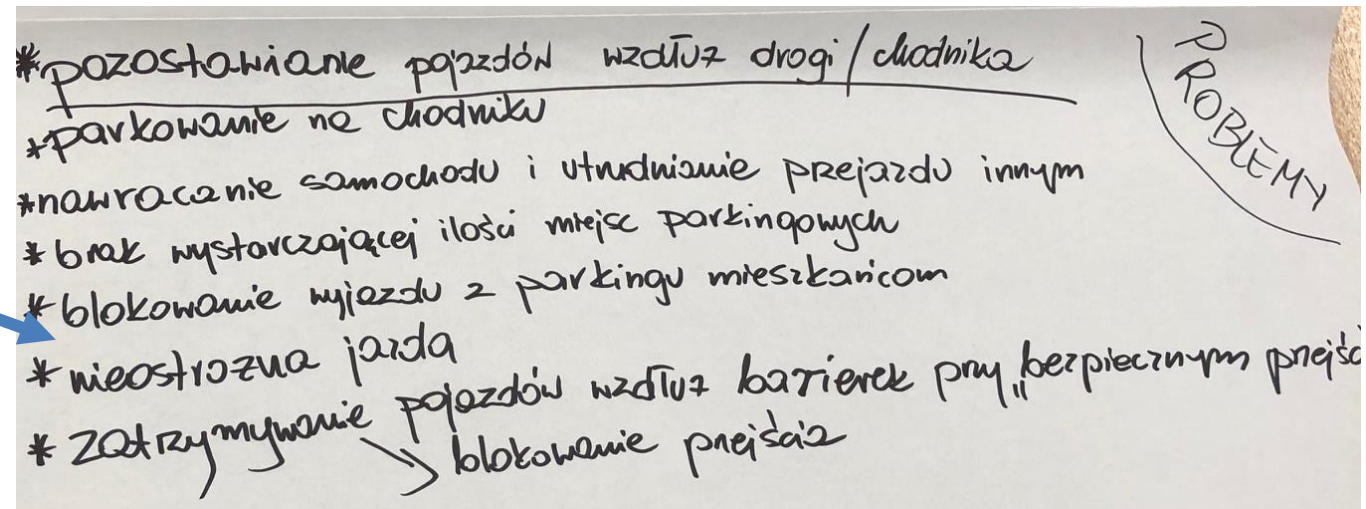 PROBLEMY
*pozostawianie pojazdów wzdłuż drogi/chodnika
*parkowanie na chodniku
*nawracanie samochodu i utrudnianie przejazdu innym
*brak wystarczającej ilości miejsc parkingowych
*blokowanie wyjazdu z parkingu mieszkańcom
*nieostrożna jazda
*zatrzymywanie pojazdów wzdłuż barierek przy „bezpiecznym przejśc
blokowanie przejścia